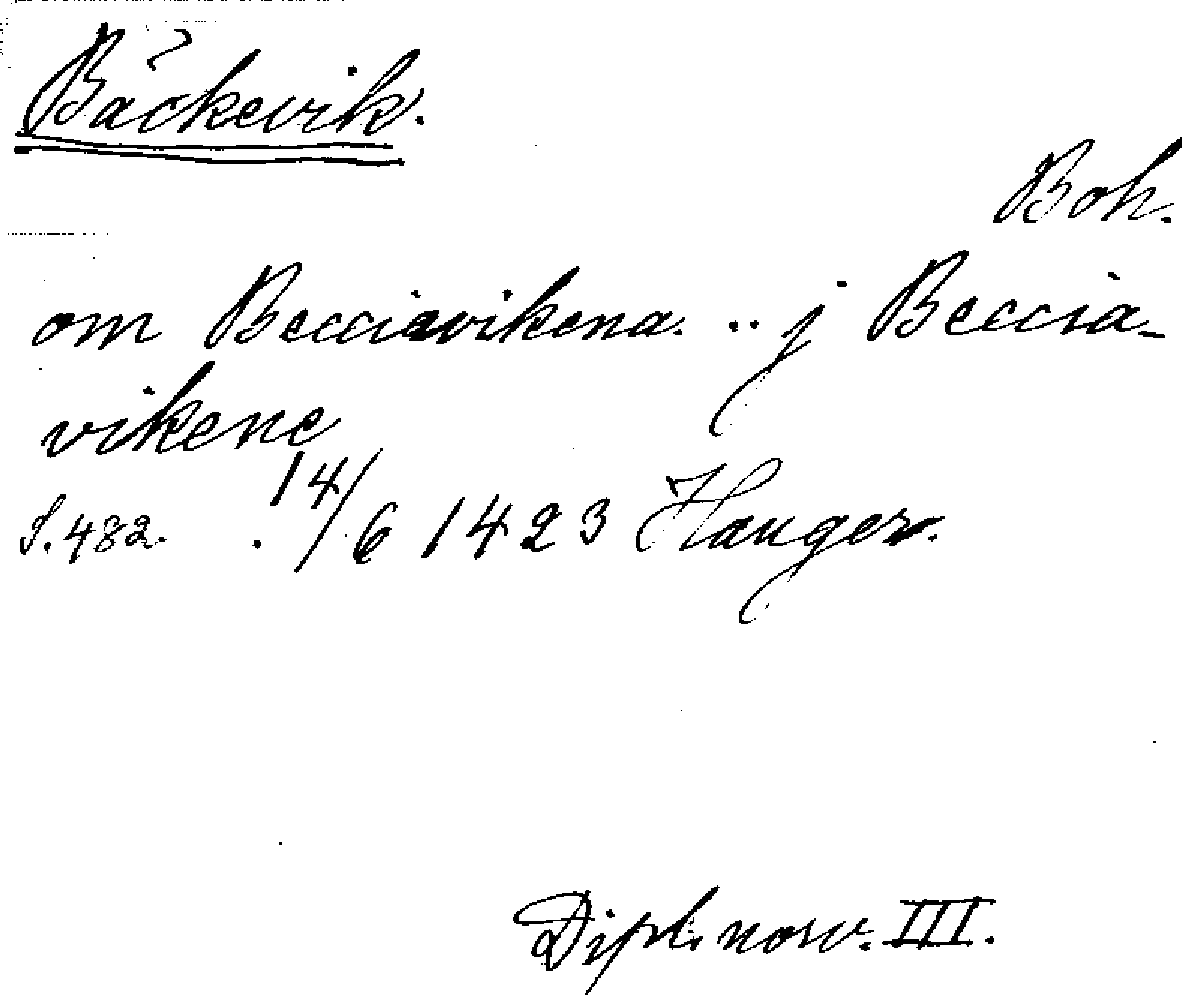 Bäckevik.
Boh.
om Becciavikena. .. j Beccia-
vikene
S. 482. 14/6 1423 Hauger.
Dipl. norv. III.